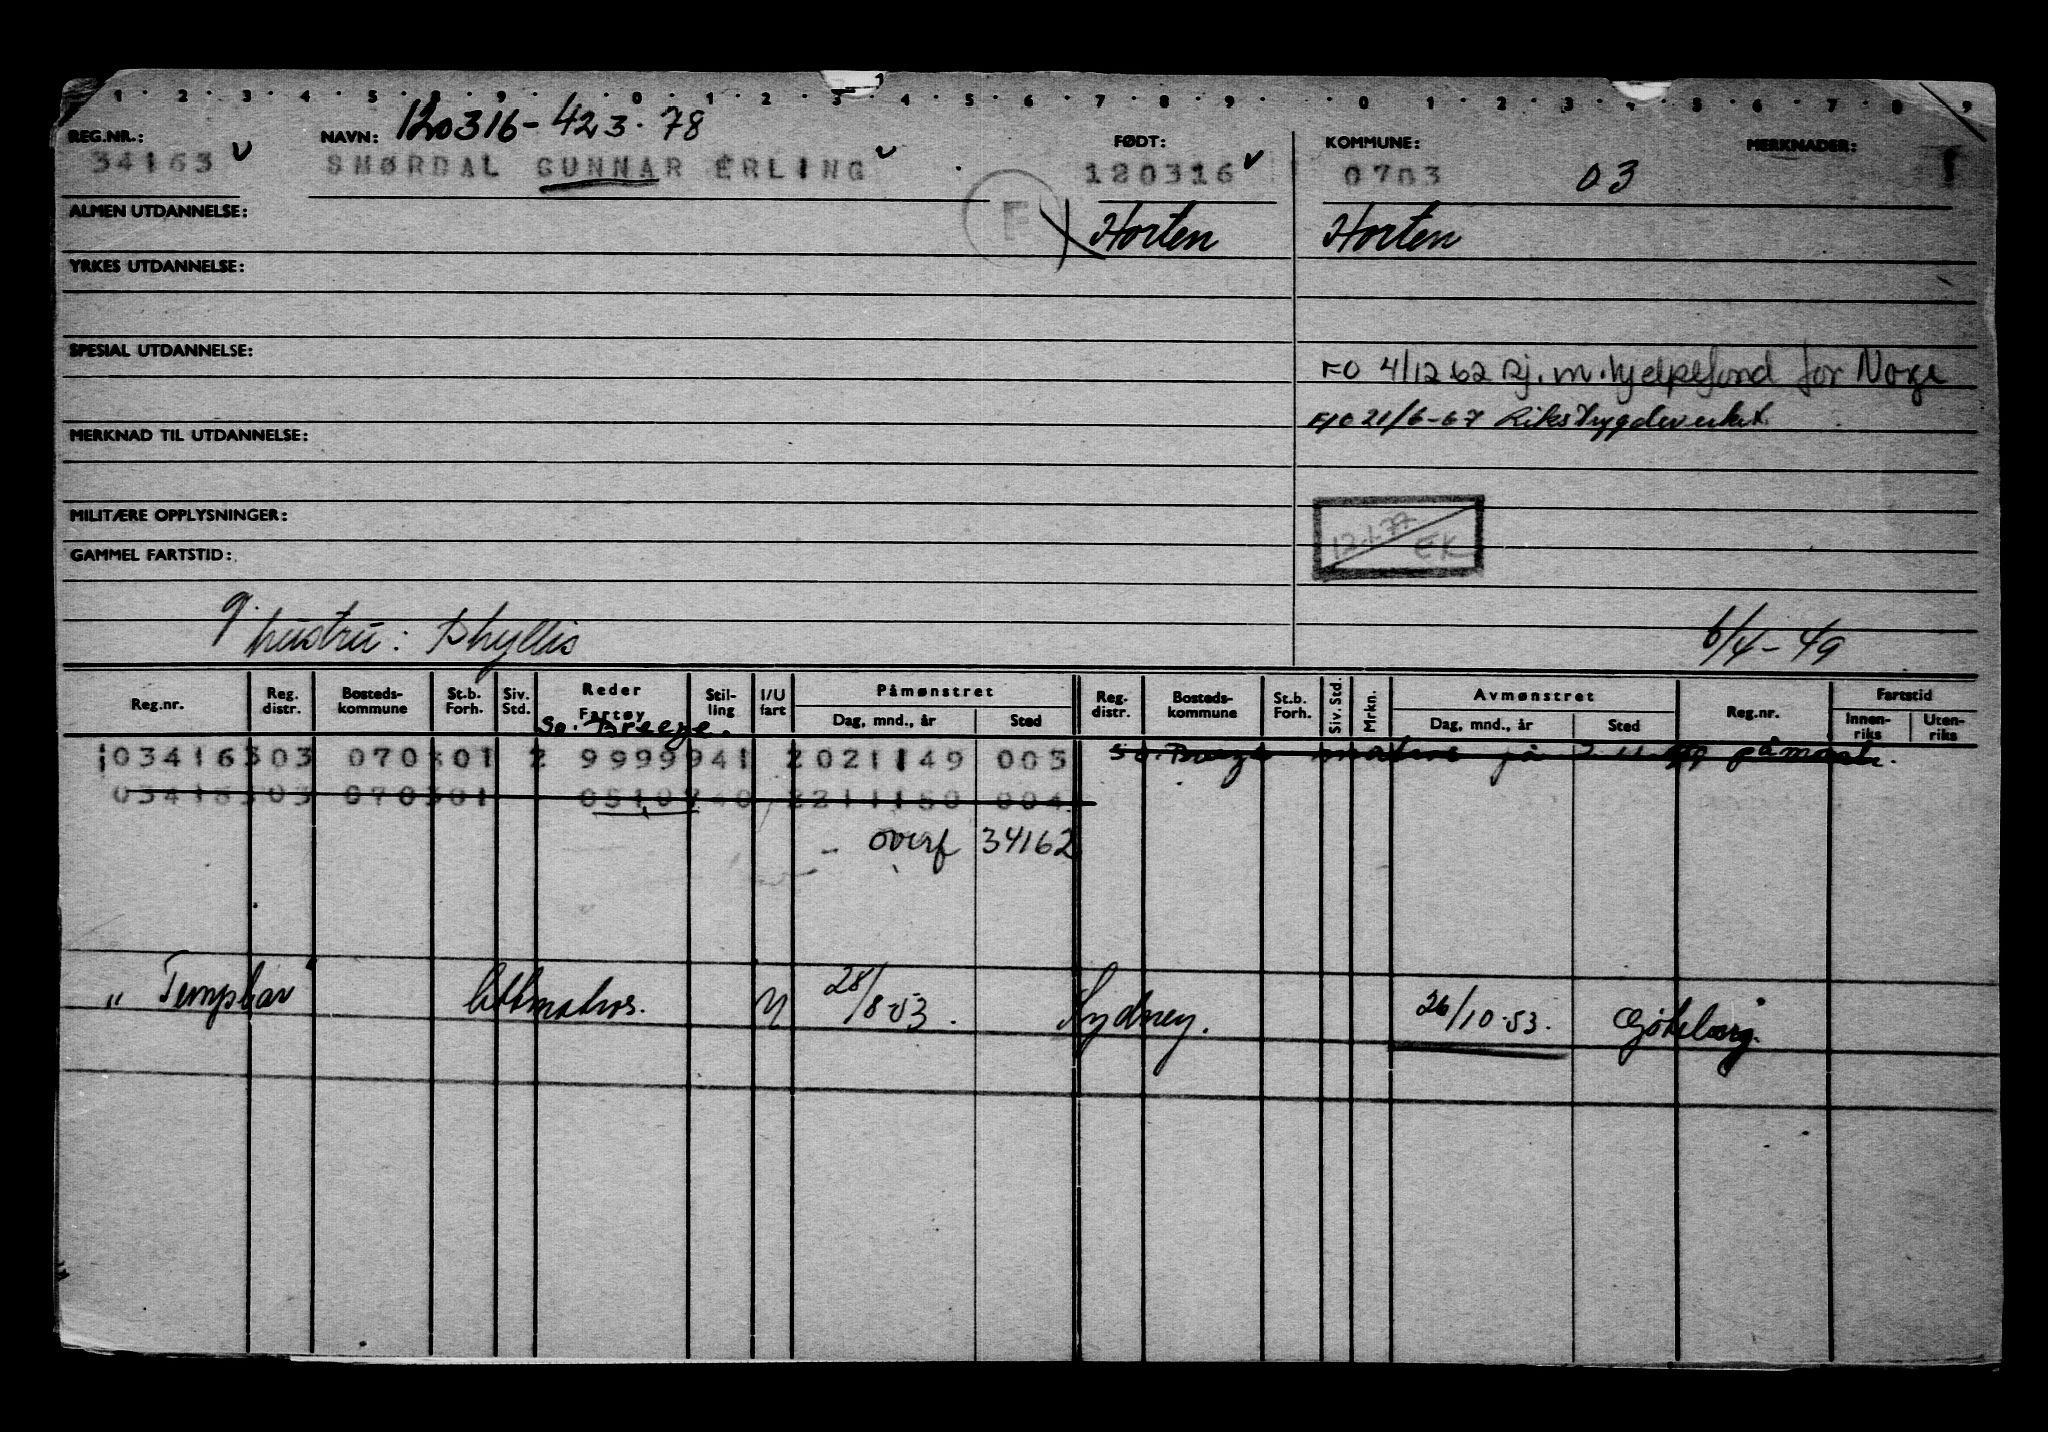 1 2 3 4 5 8 9 0 1 2 3 4 5 6 7 8 9 0 1 2 3 4 5 6 7 8 9
120316-423.78
REG.NR.: NAVN: FØDT: KOMMUNE: MERKNADER:
34163 SMØRDAL GUNNAR ERLING 120316 0703 03
F
ALMEN UTDANNELSE: Horten Horten
YRKES UTDANNELSE:
SPESIAL UTDANNELSE:
FO 4/12 62 Dj. m. hjelpefond for Norge
F/O 21/6-67 Rikstrygdeverket
MERKNAD TIL UTDANNELSE:
MILITÆRE OPPLYSNINGER:
12.1.77 EK
GAMMEL FARTSTID:
g. hustru: Phyllis 6/4-49
Reg.nr. Reg. distr. Bosteds-kommune St.b. Forh. Siv. Std. Reder Fartøy Stil-ling I/U fart Påmønstret Dag, mnd., år Sted Reg. distr. Bosteds-kommune St.b. Forh. Siv. Std. Mrkn. Avmønstret Dag, mnd., år Sted Reg.nr. Fartstid Innen-riks Uten-riks
So. Breeze.
103416303 070301 2 9999941 2021149 005 So. Breeze matros på påmønstr.
03416303 070301 0510740 2211150 004
overf 34162
"Templar" lettmatros. U 28/8-53. Sydney. 26/10-53. Göteborg.